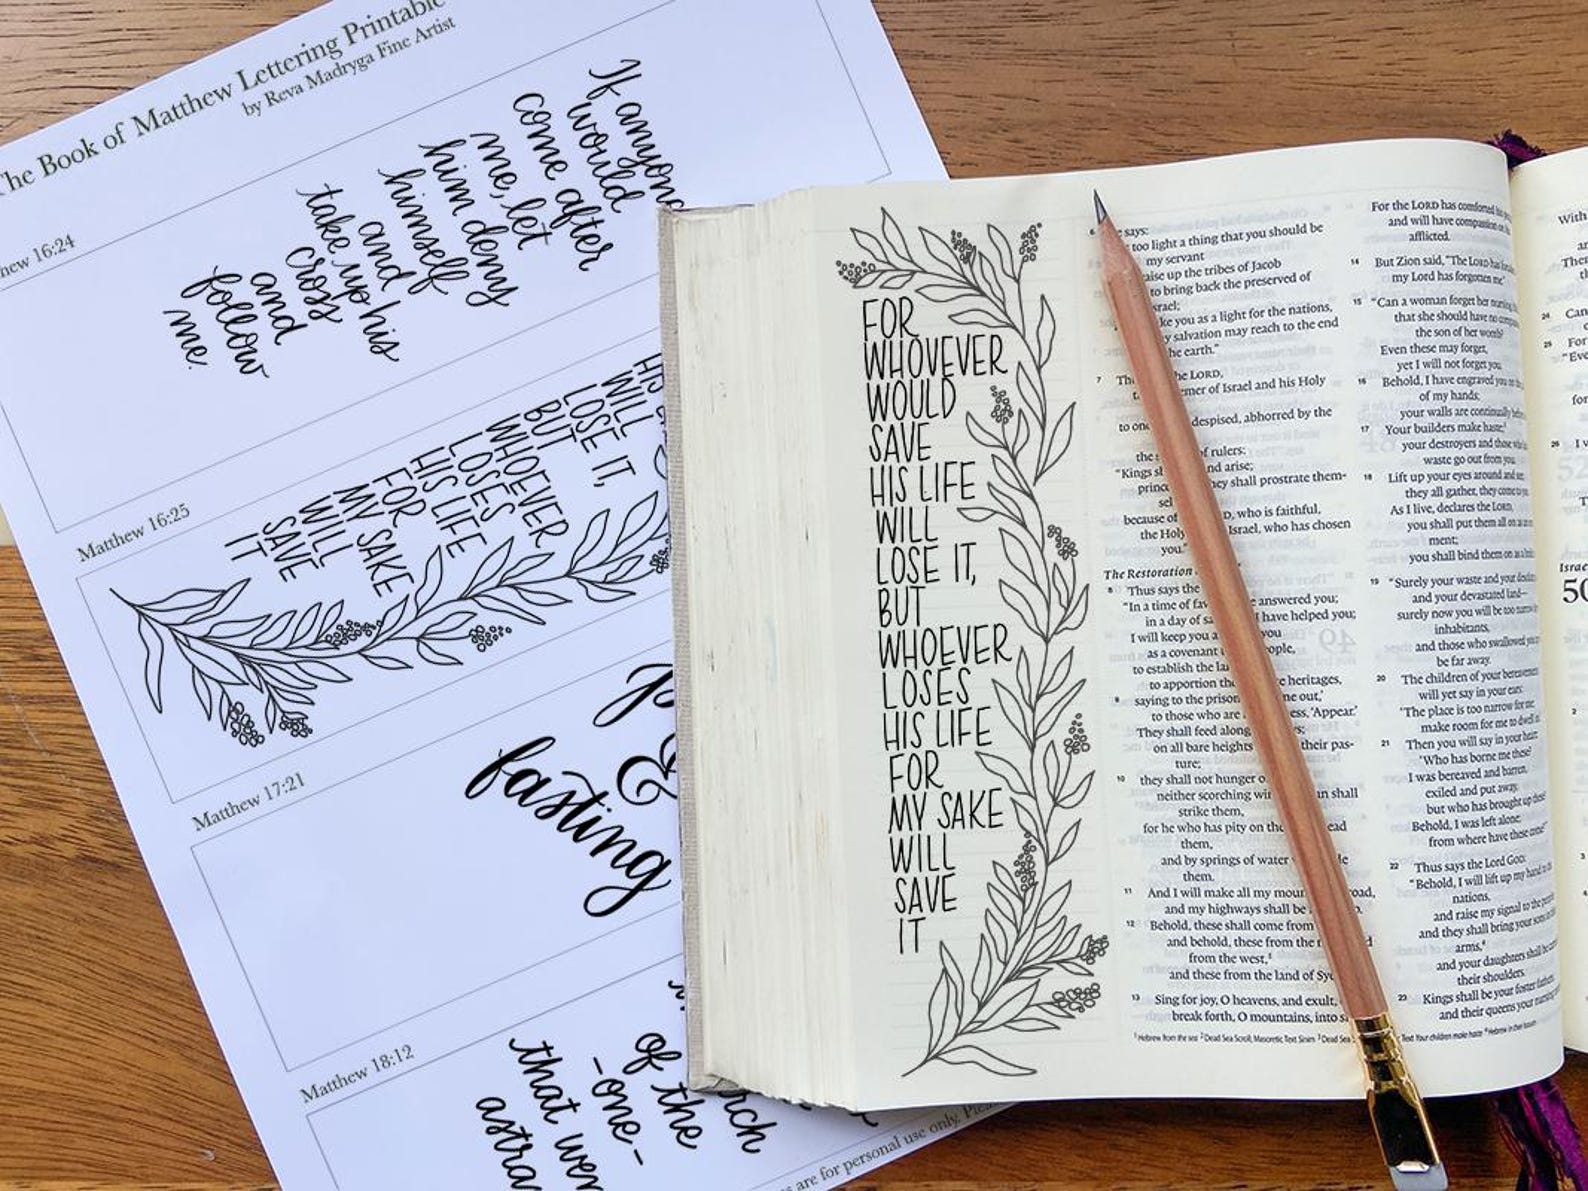 The Book of Matthew Lettering Printable
by Reva Madryga Fine Artist
16:24
If anyone
would
come after
me, let
him deny
himself
and
take up his
cross
and
follow
me.
Matthew 16:25
WILL
LOSE IT,
BUT
WHOEVER
LOSES
HIS LIFE
FOR
MY SAKE
WILL
SAVE
IT
Matthew 17:21
&
fasting
Matthew 18:12
of the
-one-
that
are for personal use only.
FOR
WHOVEVER
WOULD
SAVE
HIS LIFE
WILL
LOSE IT,
BUT
WHOEVER
LOSES
HIS LIFE
FOR
MY SAKE
WILL
SAVE
IT
6 says:
too light a thing that you should be
my servant
up the tribes of Jacob
to bring back the preserved of
you as a light for the nations,
salvation may reach to the end
he earth."
7 the LORD,
of Israel and his Holy
to one despised, abhorred by the
the of rulers:
"Kings and arise;
they shall prostrate them-
because of who is faithful,
the Holy Israel, who has chosen
you."
The Restoration
8 Thus says the
"In a time of answered you;
in a day of have helped you;
I will keep you you
as a covenant
to establish the
to apportion the heritages,
9 saying to the out,'
to those who are 'Appear.'
They shall feed along
on all bare heights their pas-
ture;
10 they shall not hunger
neither scorching shall
strike them,
for he who has pity on
them,
and by springs of water
them.
11 And I will make all my road,
and my highways shall be
12 Behold, these shall come from
and behold, these from the
from the west,
and these from the land of
13 Sing for joy, O heavens, and exult,
break forth, O mountains, into
1 Hebrew from the sea 2 Dead Sea Scroll, Masoretic Text Sinim 3 Dead Sea
For the LORD has comforted his
and will have compassion on his
afflicted.
14 But Zion said, "The LORD has
my Lord has forgotten me."
15 "Can a woman forget her nursing
that she should have no
the son of her womb?
Even these may forget,
yet I will not forget you.
16 Behold, I have engraved you on the
of my hands;
your walls are continually
17 Your builders make haste;
your destroyers and those who
waste go out from you.
18 Lift up your eyes around and see;
they all gather, they come to
As I live, declares the LORD,
you shall put them all on as an
ment;
you shall bind them on as a
19 "Surely your waste and your
and your devastated land—
surely now you will be too narrow
inhabitants,
and those who swallowed you
be far away.
20 The children of your bereavement
will yet say in your ears:
'The place is too narrow for me;
make room for me to dwell
21 Then you will say in your heart:
'Who has borne me these?
I was bereaved and barren,
exiled and put away,
but who has brought up these?
Behold, I was left alone;
from where have these come?'"
22 Thus says the Lord GOD:
"Behold, I will lift up my hand to
nations,
and raise my signal to the
and they shall bring your sons
arms,
and your daughters shall be
their shoulders.
23 Kings shall be your foster fathers,
and their queens your nursing
Text Your children make haste